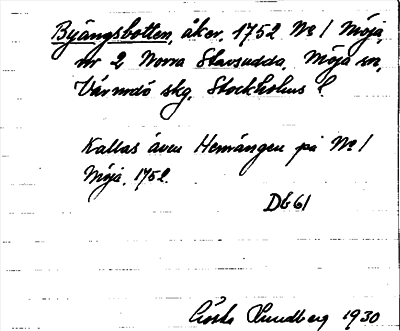 Byängsbotten, åker, 1752 No 1 Möja,
nr 2 Norra Stavsudda, Möja sn,
Värmdö skg, Stockholms l.
Kallas även Hemängen på No 1
Möja, 1752.
Db 61
Gösta Lundberg 1930